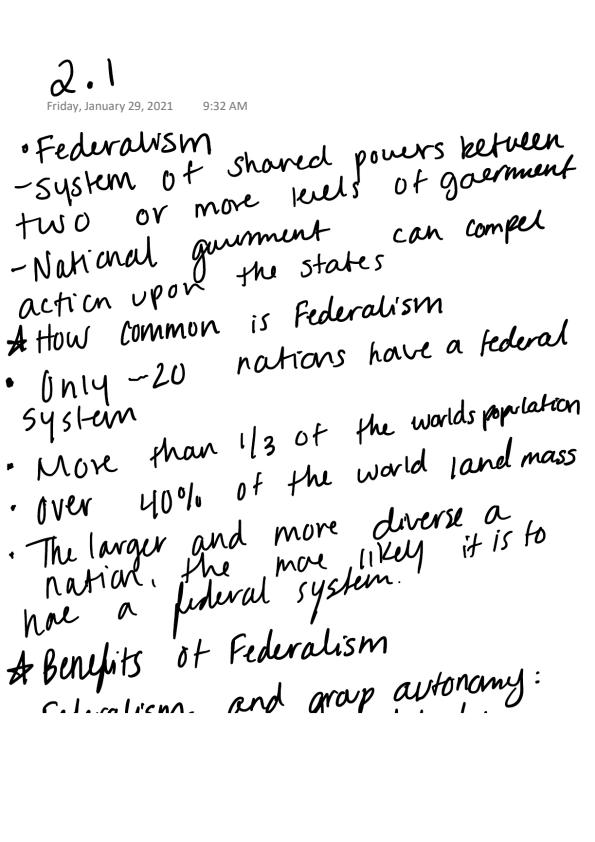 2.1
Friday, January 29, 2021 9:32 AM
• Federalism
- System of shared powers between
two or more levels of goernment
- National government can compel
action upon the states
☆ How common is Federalism
• Only ~20 nations have a federal
system
• More than 1/3 of the worlds population
• Over 40% of the world land mass
• The larger and more diverse a
nation, the more likely it is to
hae a federal system.
☆ Benefits of Federalism
Federalism and group autonomy: